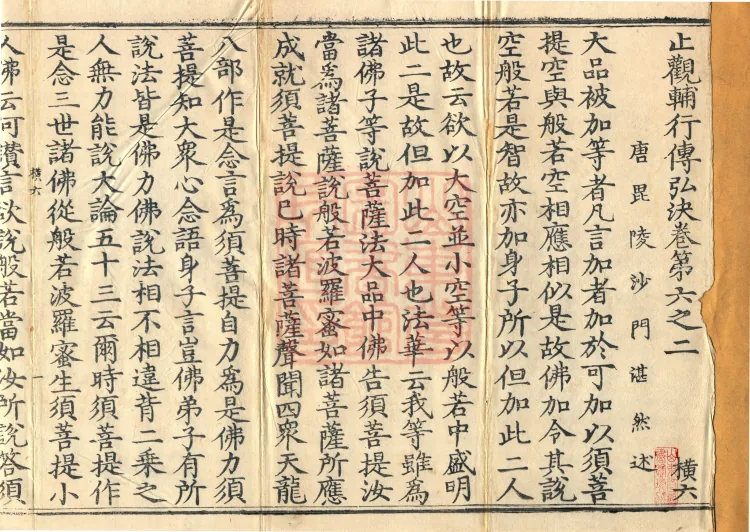 止觀輔行傳弘決卷第六之二
橫六
唐毘陵沙門湛然述
大品被加等者凡言加者加於可加以須菩
提空與般若空相應相似是故佛加令其說
空般若是智故亦加身子所以但加此二人
也故云欲以大空並小空等以般若中盛明
此二是故但加此二人也法華云我等雖為
諸佛子等說菩薩法大品中佛告須菩提汝
當為諸菩薩說般若波羅蜜如諸菩薩所應
成就須菩提說已時諸菩薩聲聞四眾天龍
八部作是念言為須菩提自力為是佛力須
菩提知大眾心念語身子言豈佛弟子有所
說法皆是佛力佛說法相不相違背二乘之
人無力能說大論五十三云爾時須菩提作
是念三世諸佛從般若波羅蜜生須菩提小
橫六
一
人佛云何讚言欲說般若當如汝所說答須